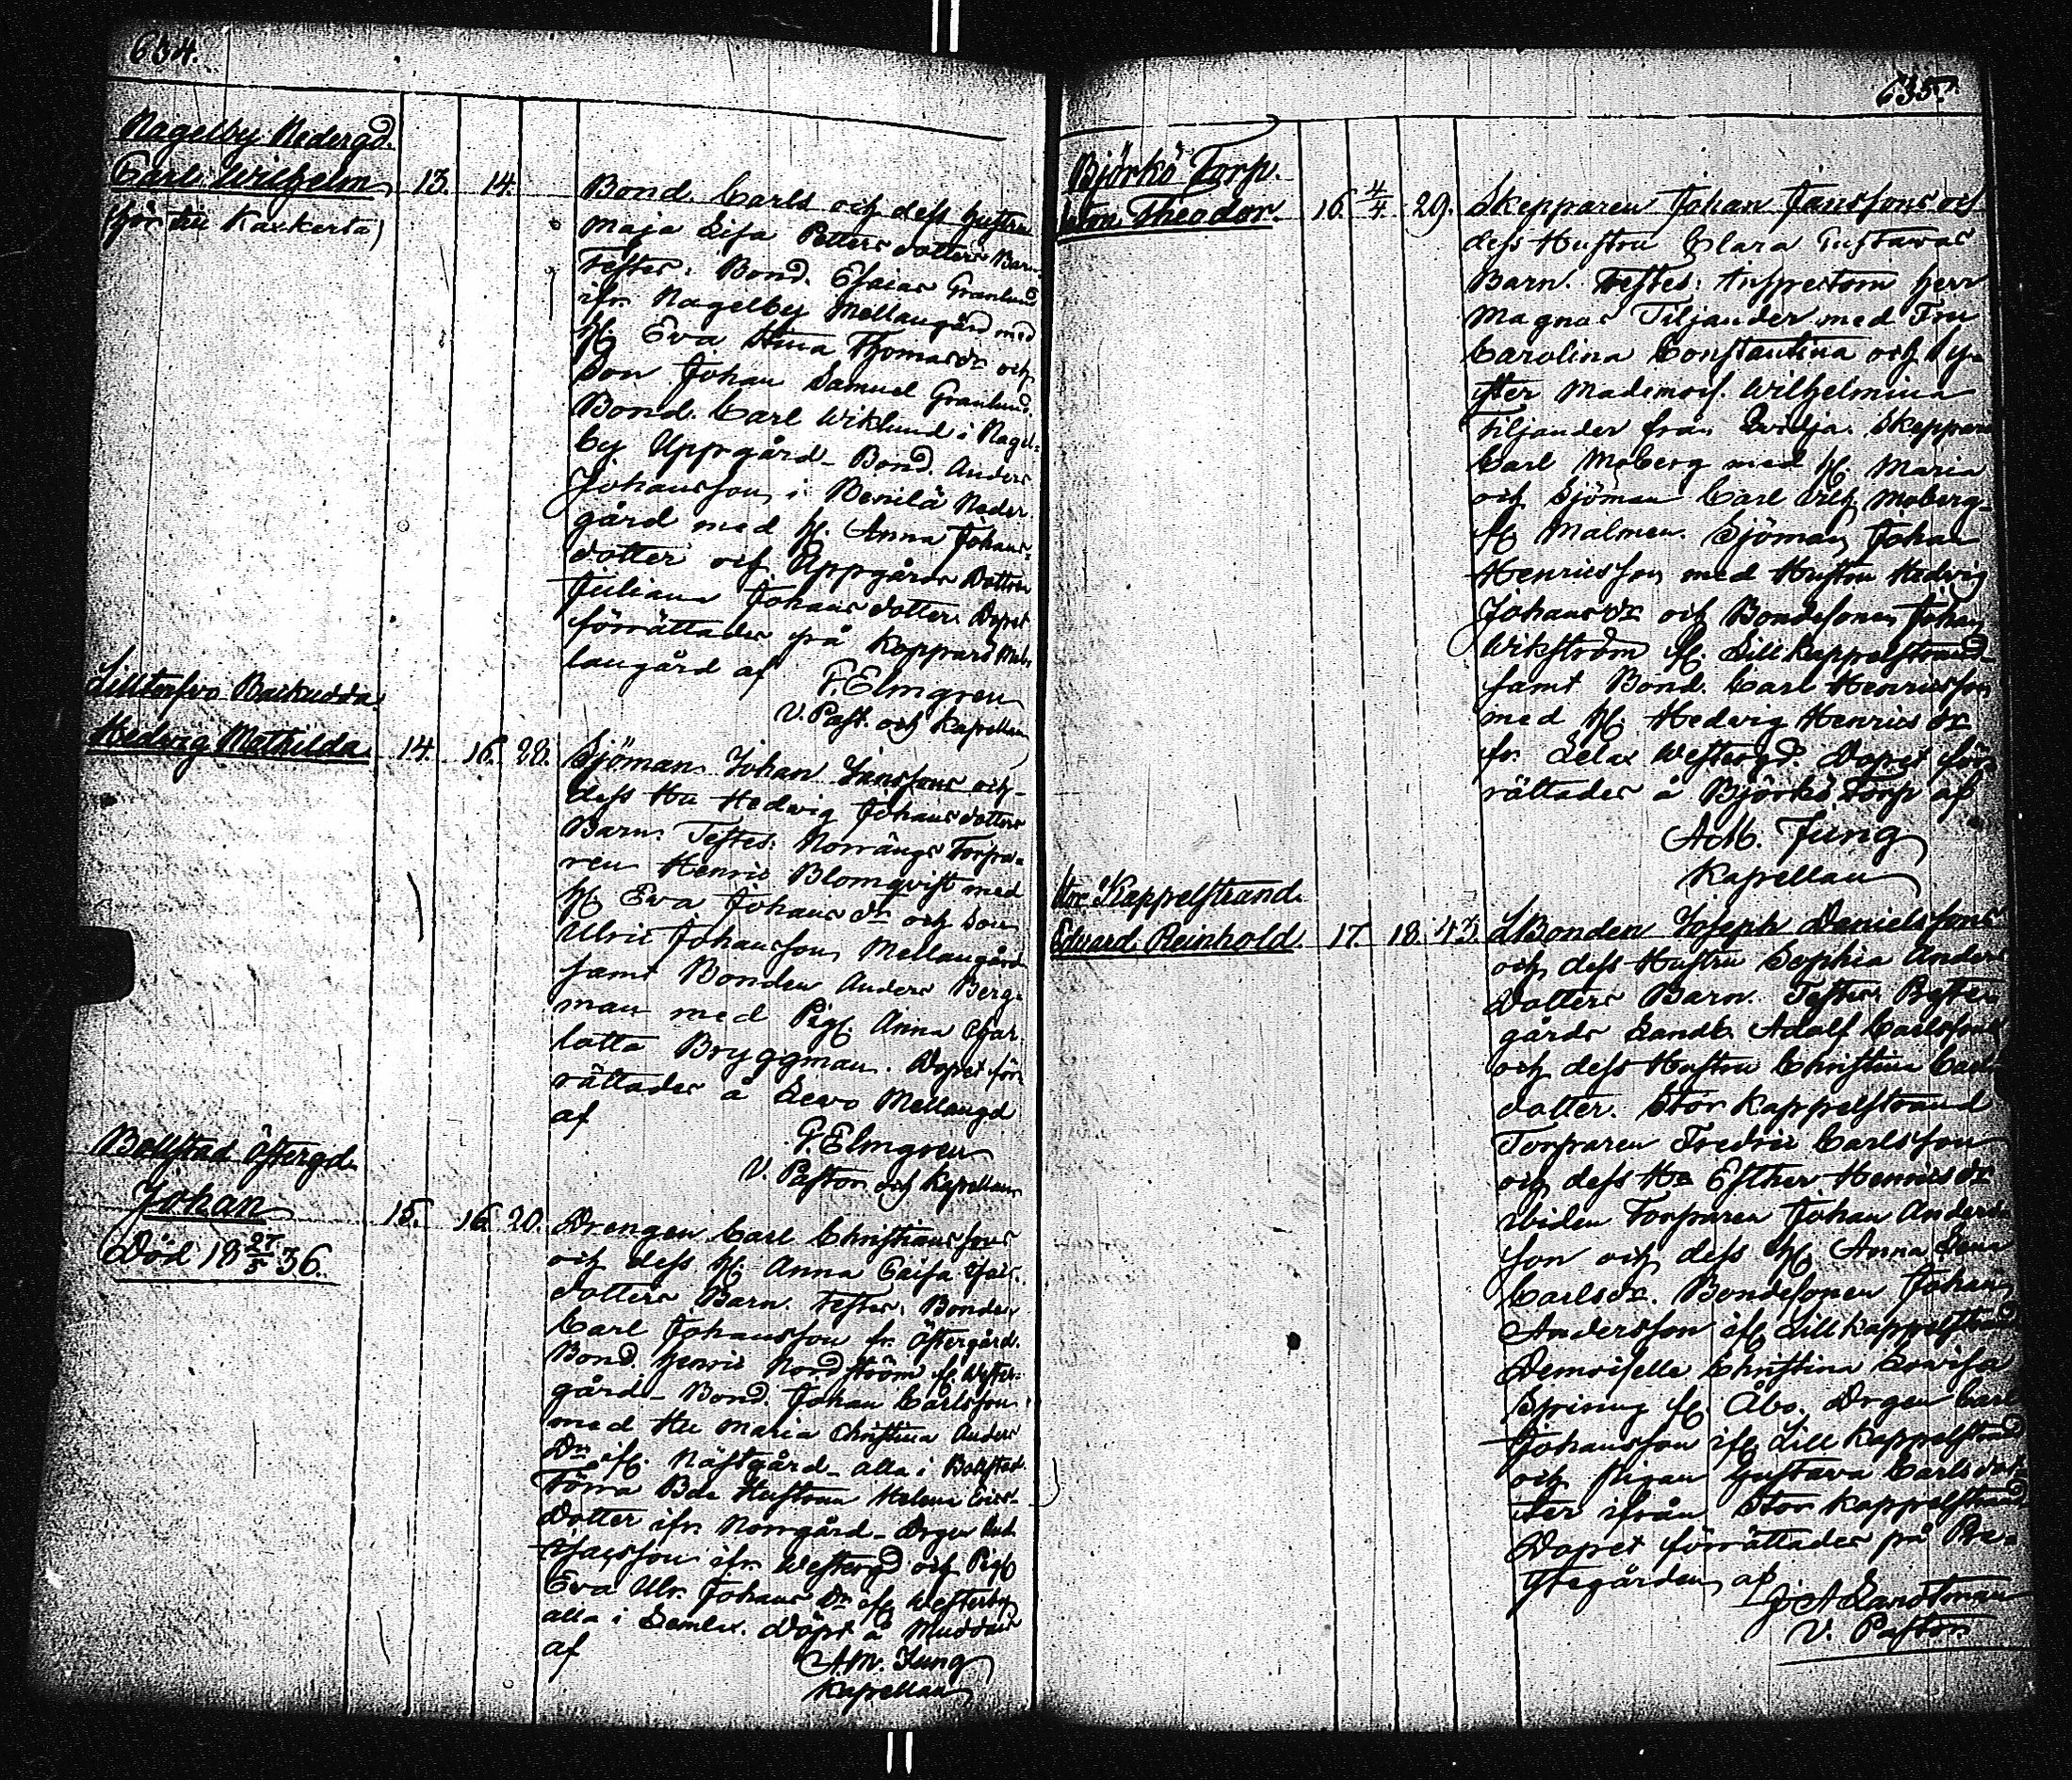 634.
Nagelby Nedergd.
Carl Wilhelm 13. 14.
(hör till Kaxkerta)
Bond. Carls och dess hustru
Maja Lisa Petters dotters Barn.
Testes: Bond. Esaias Granlund
ifr. Nagelby Mellangård med
H. Eva Stina Thomasdr och
Son Johan Samuel Granlund.
Bond. Carl Wiklund i Nagel-
by Uppgård - Bond. Anders
Johansson i Benilä Neder-
gård med H. Anna Johans-
dotter och Uppgårds Dottren
Juliana Johansdotter. Dopet
förrättades på Koppars Mel-
langård af F. Elmgren
V. Past. och Kapellan
Hedvig Mathilda 14. 16. 28.
Sjöman Johan Janssons och
dess Hu Hedvig Johansdotters
Barn. Testes: Norrängs Torpa-
ren Henric Blomqvist med
H. Eva Johansdr och Son
Ulric Johansson Mellangård
samt Bonden Anders Berg-
man med Pig. Anna Char-
lotta Bryggman. Dopet för-
rättades å Levo Mellangd
af
F. Elmgren
V. Pastor och Kapellan
Bollstad Östergd.
Johan 15. 16. 20.
Död 18 27/5 36.
Drengen Carl Christianssons
och dess H. Anna Caisa
dotters Barn. Testes: Bonden
Carl Johansson fr. Östergård.
Bond. Henric Nordström fr. Wester-
gård - Bond. Johan Carlsson
med Hu Maria Christina Anders
Dr ifr. Nästgård - alla i Bollstad.
Förra Bde Hustrun Helena Erics-
Dotter ifr. Norrgård - Drgen
Isacsson ifr. Westergd och Pig.
Eva Ulr. Johans Dr ifr. Westerby
alla i Lemlax. Döpt å Muddais
af
A.M. Jung
Kapellan
635.
Björkö Torp.
Anton Theodor. 16. 4/4. 29.
Skepparen Johan Janssons och
dess Hustru Clara Gustavas
Barn. Testes: Inspectorn Herr
Magnus Tiljander med Fru
Carolina Constantina och Sy-
ster Mademois. Wilhelmina
Tiljander från Qvidja. Skepparen
Carl Moberg med H. Maria
och Sjöman Carl Moberg
fr. Malmen. Sjöman Johan
Henricsson med Hustru Hedvig
Johansdr och Bondesonen Johan
Wikström fr. Lill Kappelstrand
samt Bond. Carl Henricsson
med H. Hedvig Henricsdr
fr. Lelax Westergd. Dopet för-
rättades å Björkö Torp af
A.M. Jung
Kapellan
Stor Kappelstrand.
Edvard Reinhold. 17. 18. 43.
LBonden Joseph Danielssons
och dess Hustru Sophia Anders
dotters Barn. Testes: Bester-
gårds Landb. Adolf Carlsson
och dess Hustru Christina Carls
dotter. Stor Kappelstrand
Torparen Fredric Carlsson
och dess Hu Esther Henricsdr
ibidem Torparen Johan Anders-
son och dess H. Anna Lena
Carlsdr. Bondesonen Johan
Andersson ifr. Lill Kappelstrand
Demoiselle Christina Lovisa
Spiring fr. Åbo. Drgen Carl
Johansson ifr. Lill Kappelstrand
och Pigan Gustava Carlsdot-
ter ifrån Stor Kappelstrand
Dopet förrättades på Pre-
stegården af
J A Sandtman
V. Pastor.